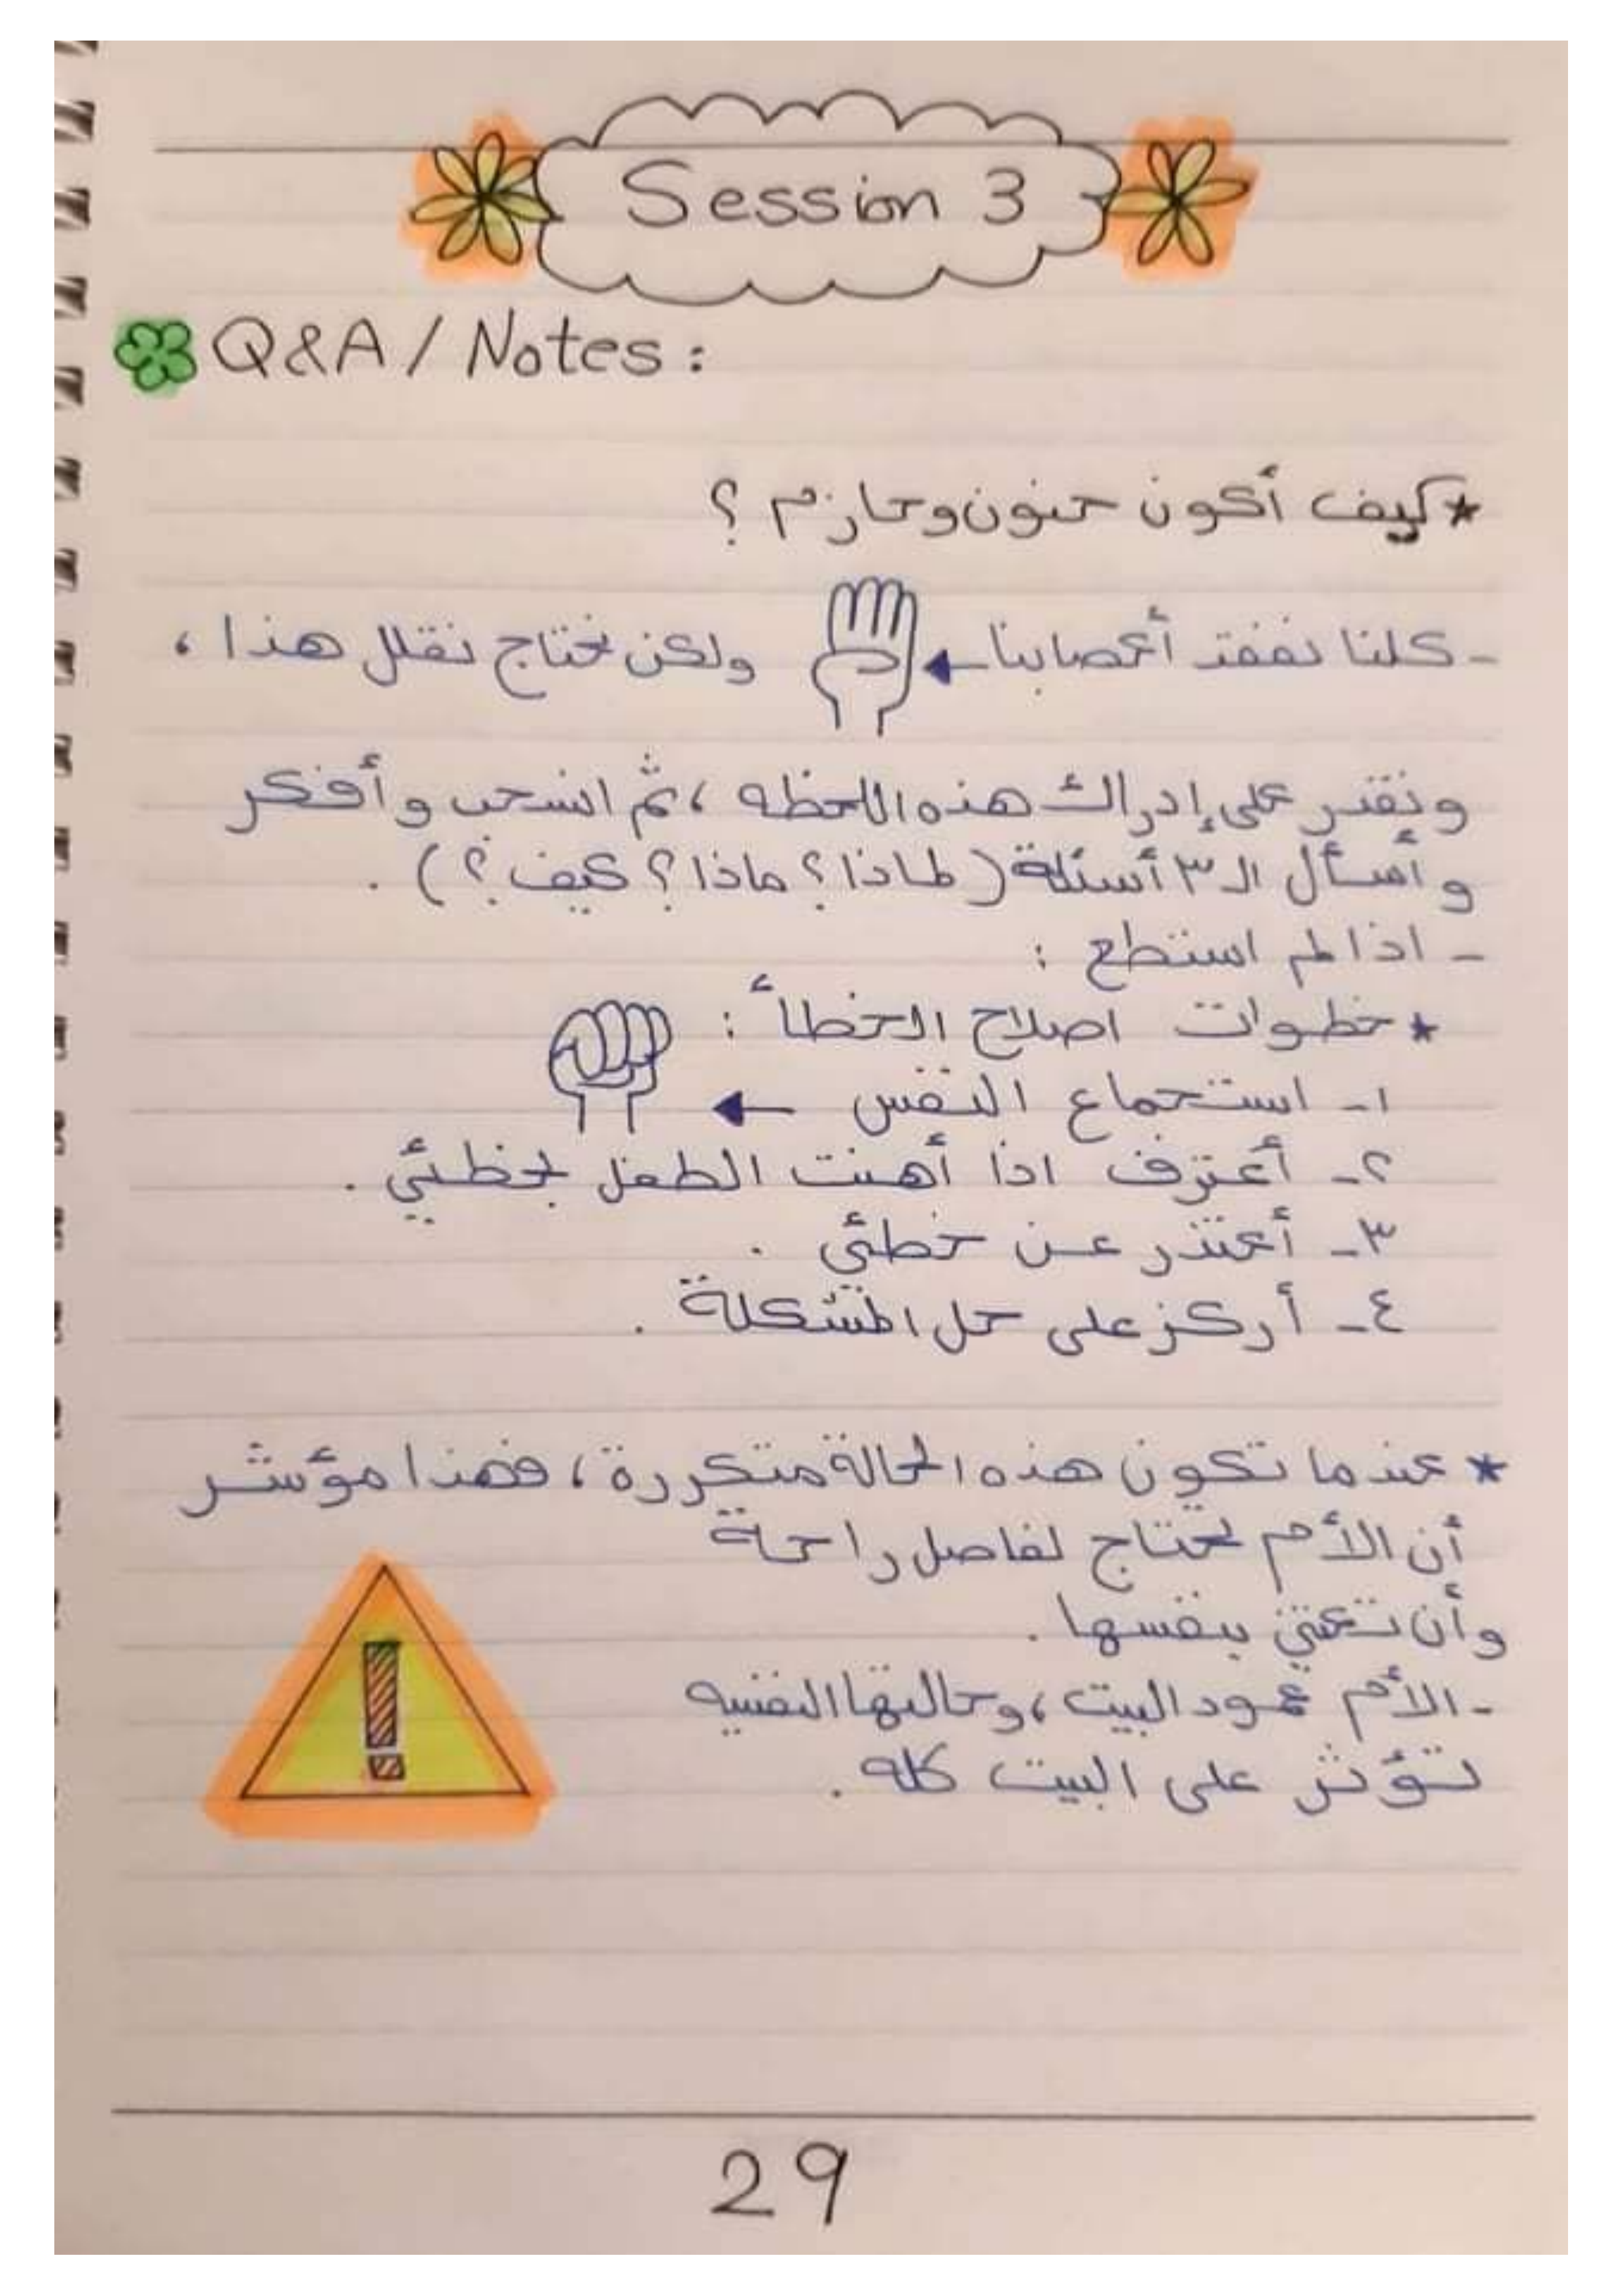 Session 3
Q&A / Notes:
* كيف أكون حنون وحازم ؟
- كلنا نفقد أعصابنا ولكن نحتاج نقلل هذا ،
ونقدر على إدراك هذه اللحظه ، ثم انسحب وأفكر
وأسأل الـ ٣ أسئلة ( لماذا ؟ ماذا ؟ كيف ؟ ) .
- اذا لم استطع :
* خطوات اصلاح الخطأ :
١- استجماع النفس
٢- أعترف اذا أهنت الطفل بخطئي .
٣- أعتذر عن خطئي .
٤- أركز على حل المشكلة .
* عندما تكون هذه الحالة متكررة ، فهذا مؤشر
أن الأم تحتاج لفاصل راحة
وأن تعتني بنفسها .
- الأم عمود البيت ، وحالتها النفسيه
تؤثر على البيت كله .
29